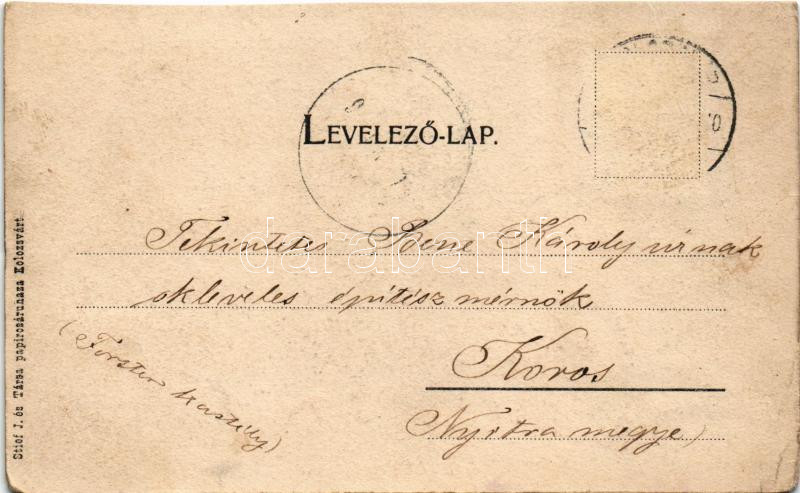 LEVELEZŐ-LAP.
Tekintetes Bene Károly úrnak
okleveles építészmérnök
Koros
Nyitra megye
(Forster kastély)
Stief J. és Társa papirosárunaza Kolozsvárt
darabanth